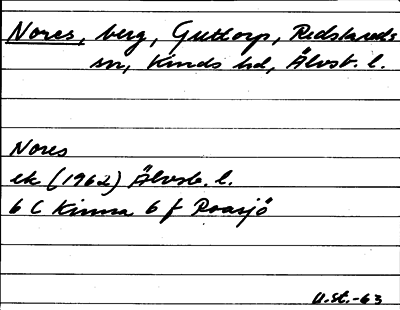 Nores, berg, Guttorp, Redslareds
sn, Kinds hd, Älvsb. l.
Nores
ek (1962) Älvsb. l.
6 C Kinna 6 f Roasjö
U.St.-63